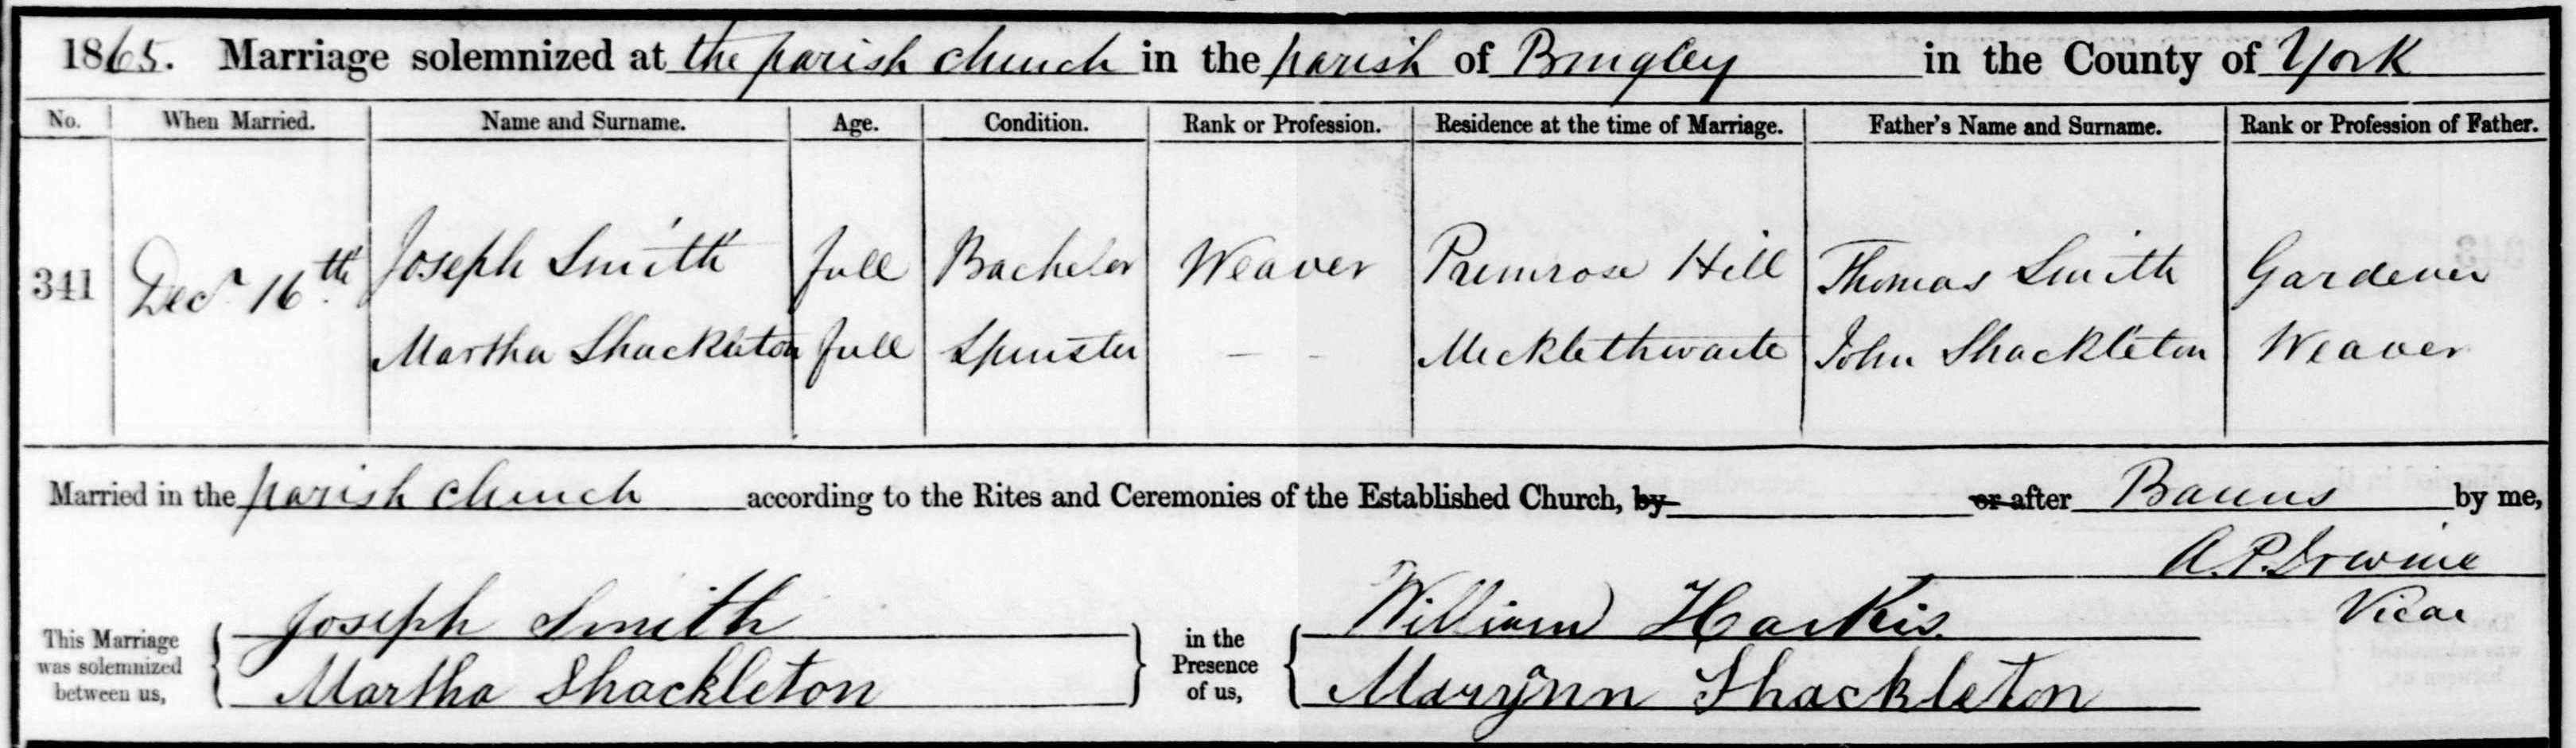 1865. Marriage solemnized at the parish church in the parish of Bingley in the County of York
No. When Married. Name and Surname. Age. Condition. Rank or Profession. Residence at the time of Marriage. Father's Name and Surname. Rank or Profession of Father.
341 Decr 16th Joseph Smith full Bachelor Weaver Primrose Hill Thomas Smith Gardener
Martha Shackleton full Spinster – – Micklethwaite John Shackleton Weaver
Married in the parish church according to the Rites and Ceremonies of the Established Church, by or after Banns by me,
A.P. Irwine
Vicar
This Marriage was solemnized between us,
Joseph Smith
Martha Shackleton
in the Presence of us,
William Harkis
Maryann Shackleton